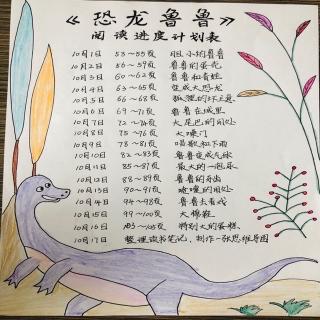 《恐龙鲁鲁》
阅读进度计划表
10月1日 53~55页 胆小的鲁鲁
10月2日 56~59页 鲁鲁的蛋壳
10月3日 60~62页 鲁鲁和青蛙
10月4日 63~65页 变成大恐龙
10月5日 66~68页 狐狸的坏主意
10月6日 69~71页 鲁鲁在城里
10月7日 72~74页 大尾巴的用处
10月8日 75~76页 大嗓门
10月9日 78~81页 唱歌和下雨
10月10日 82~83页 鲁鲁变成气球
10月11日 85~87页 最大的一棵菜
10月12日 88~89页 鲁鲁的牙齿
10月13日 90~91页 喷嚏的用处
10月14日 94~98页 鲁鲁去看戏
10月15日 99~100页 大棉鞋
10月16日 103~105页 特别大的蛋糕
10月17日 整理读书笔记,制作一张思维导图